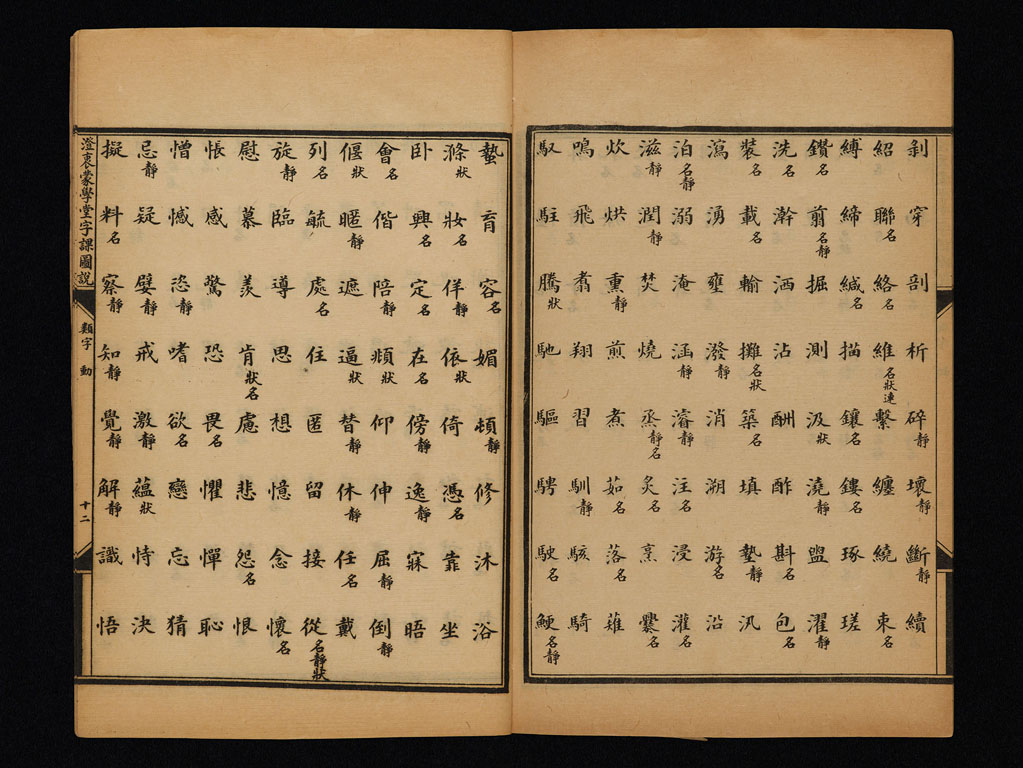 剝穿剖析碎靜壞靜斷靜續
紹聯名絡名維名狀連繫纏繞束名
縛締緘名描鑲名鏤名琢瑳
鑽名翦名靜掘測汲狀澆靜盥濯靜
洗名澣洒沾酬酢斟名包名
裝名載名輸攤名狀築名填墊靜汎
瀉湧壅潑靜消溯游名沿
泊名靜溺淹涵靜濬靜注名浸灌名
滋靜潤靜焚燒烝靜名炙名烹爨名
炊烘熏靜煎煮茹名落名薙
鳴飛翥翔習馴靜駭騎
馭駐騰狀馳驅騁駛名鯁名靜
蟄育容名媚頓靜修沐浴
滌狀妝名佯靜依狀倚憑名靠坐
卧興名定名在名傍靜逸靜寐晤
會名偕陪靜頫狀仰伸屈靜倒靜
偃狀暱靜遮逼狀替靜休靜任名戴
列名毓處名住匿留接從名靜狀
旋靜臨導思想憶念懷名
慰慕羨肯狀名慮悲怨名恨
悵感驚恐畏名懼憚恥
憎憾恐靜嗜欲名戀忘猜
忌靜疑嬖靜戒激靜蘊狀恃決
擬料名察靜知靜覺靜解靜識悟
澄衷蒙學堂字課圖說
類字 動
十二